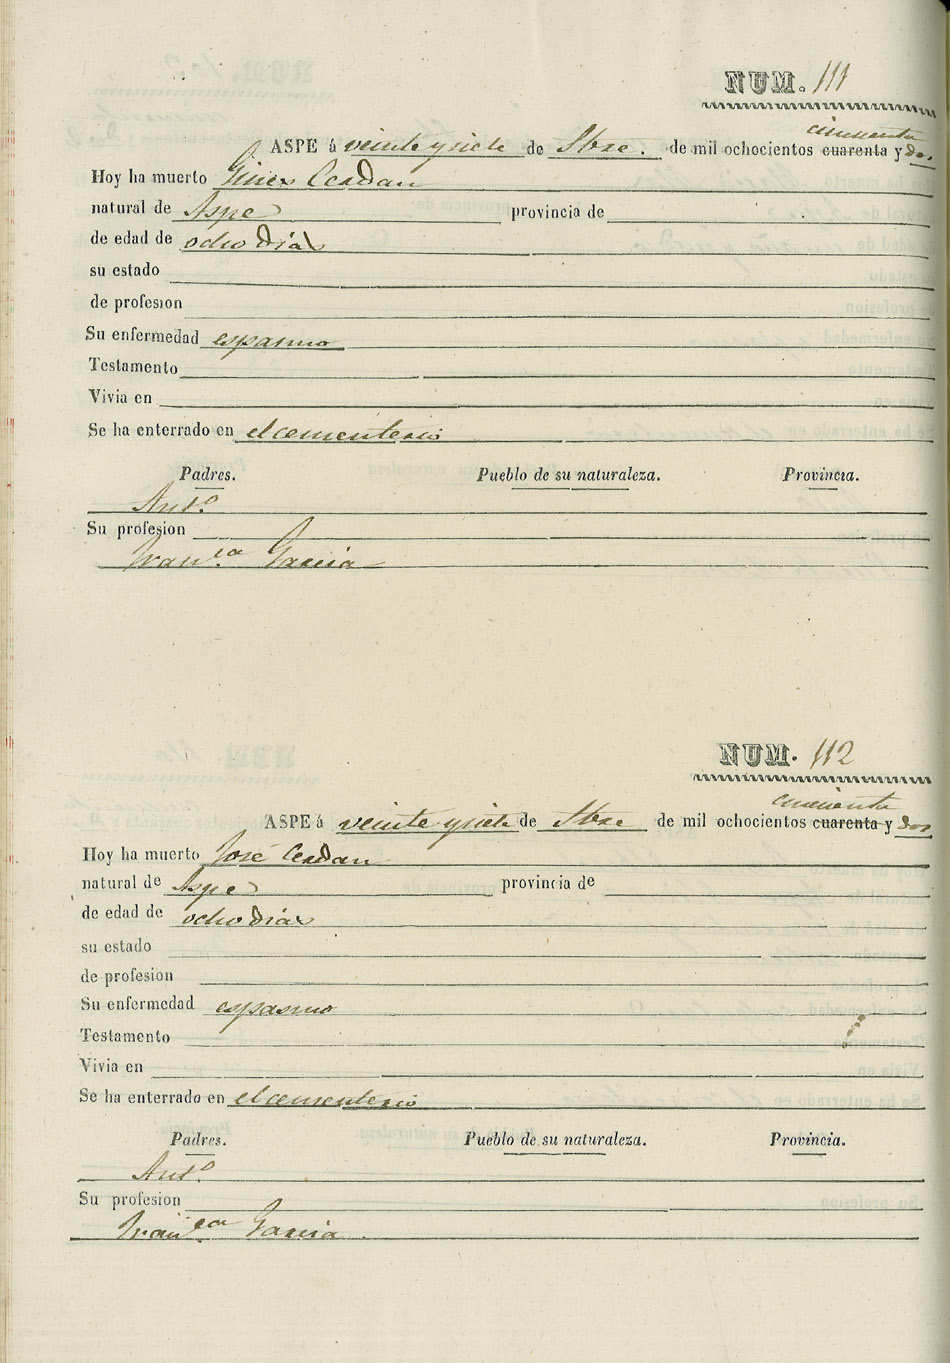 NUM. 111
cincuenta
ASPE á veinte y siete de Sbre. de mil ochocientos cuarenta y dos
Hoy ha muerto Gines Cerdan
natural de Aspe provincia de
de edad de ocho dias
su estado
de profesion
Su enfermedad espasmo
Testamento
Vivia en
Se ha enterrado en el cementerio
Padres. Pueblo de su naturaleza. Provincia.
Antº
Su profesion
Franca Garcia
NUM. 112
cincuenta
ASPE á veinte y siete de Sbre de mil ochocientos cuarenta y dos
Hoy ha muerto José Cerdan
natural de Aspe provincia de
de edad de ocho dias
su estado
de profesion
Su enfermedad espasmo
Testamento
Vivia en
Se ha enterrado en el cementerio
Padres. Pueblo de su naturaleza. Provincia.
Antº
Su profesion
Franca Garcia